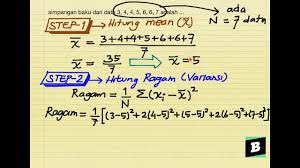 simpangan baku dari data 3, 4, 4, 5, 6, 6, 7 adalah ...
ada
N = 7 data
STEP-1 Hitung mean (x̄)
x̄ = 3+4+4+5+6+6+7 / 7
x̄ = 35/7 ⇒ x̄ = 5
STEP-2 Hitung Ragam (Variansi)
Ragam = 1/N Σ(xi - x̄)²
Ragam = 1/7 [(3-5)²+2(4-5)²+(5-5)²+2(6-5)²+(7-5)²]
B